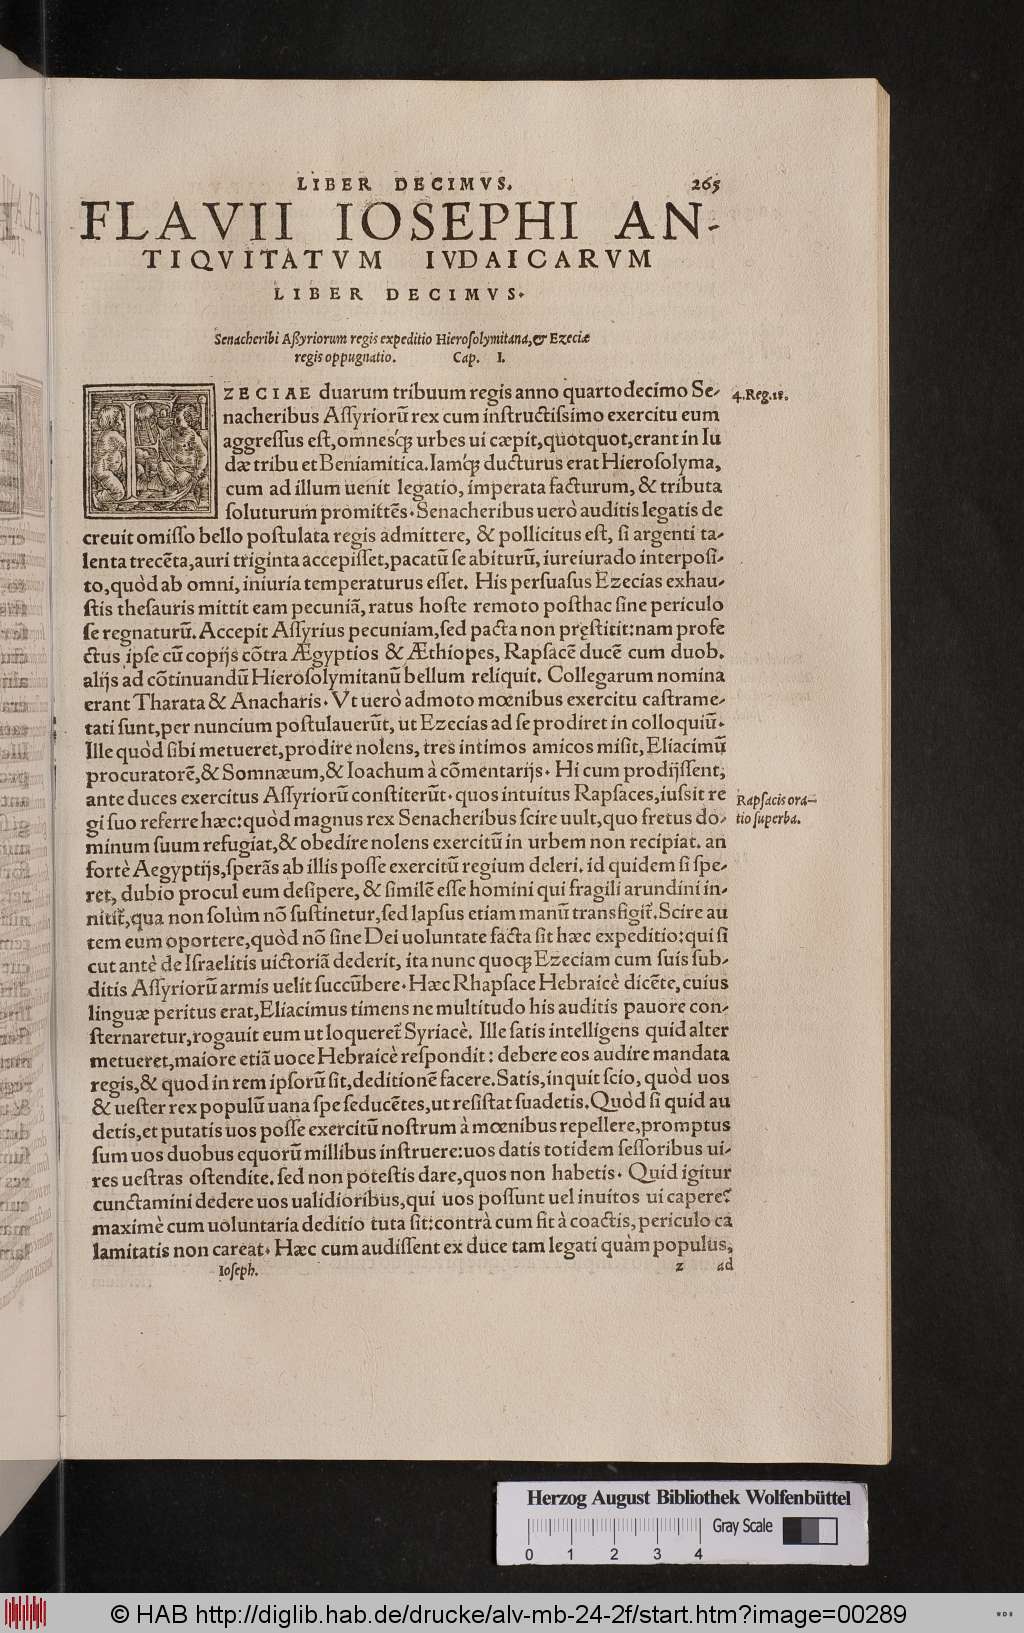 LIBER DECIMVS. 265
FLAVII IOSEPHI AN-
TIQVITATVM IVDAICARVM
LIBER DECIMVS.
Senacheribi Aßyriorum regis expeditio Hierosolymitana, & Ezeciæ
regis oppugnatio. Cap. I.
EZECIAE duarum tribuum regis anno quartodecimo Se-
nacheribus Assyriorū rex cum instructissimo exercitu eum
aggressus est, omnesq́; urbes ui cæpit, quotquot, erant in Iu
dæ tribu et Beniamitica. Iamq́; ducturus erat Hierosolyma,
cum ad illum uenit legatio, imperata facturum, & tributa
soluturum promittēs. Senacheribus uerò auditis legatis de
creuit omisso bello postulata regis admittere, & pollicitus est, si argenti ta-
lenta trecēta, auri triginta accepisset, pacatū se abiturū, iureiurado interposi-
to, quòd ab omni, iniuria temperaturus esset. His persuasus Ezecias exhau-
stis thesauris mittit eam pecuniā, ratus hoste remoto posthac sine periculo
se regnaturū. Accepit Assyrius pecuniam, sed pacta non pręstitit: nam profe
ctus ipse cū copijs cōtra Ægyptios & Æthiopes, Rapsacē ducē cum duob.
alijs ad cōtinuandū Hierosolymitanū bellum reliquit. Collegarum nomina
erant Tharata & Anacharis. Vt uerò admoto mœnibus exercitu castrame-
tati sunt, per nuncium postulauerūt, ut Ezecias ad se prodiret in colloquiū.
Ille quòd sibi metueret, prodire nolens, tres intimos amicos misit, Eliacimū
procuratorē, & Somnæum, & Ioachum à cōmentarijs. Hi cum prodijssent,
ante duces exercitus Assyriorū constiterūt. quos intuitus Rapsaces, iussit re
gi suo referre hæc: quòd magnus rex Senacheribus scire uult, quo fretus do-
minum suum refugiat, & obedire nolens exercitū in urbem non recipiat. an
fortè Aegyptijs, sperās ab illis posse exercitū regium deleri. id quidem si spe-
ret, dubio procul eum desipere, & similē esse homini qui fragili arundini in-
nitit᷑, qua non solùm nō sustinetur, sed lapsus etiam manū transfigit᷑. Scire au
tem eum oportere, quòd nō sine Dei uoluntate facta sit hæc expeditio: qui si
cut antè de Israelitis uictoriā dederit, ita nunc quoq; Ezeciam cum suis sub-
ditis Assyriorū armis uelit succūbere. Hæc Rhapsace Hebraicè dicēte, cuius
linguæ peritus erat, Eliacimus timens ne multitudo his auditis pauore con-
sternaretur, rogauit eum ut loqueret᷑ Syriacè. Ille satis intelligens quid alter
metueret, maiore etiā uoce Hebraicè respondit: debere eos audire mandata
regis, & quod in rem ipsorū sit, deditionē facere. Satis, inquit scio, quòd uos
& uester rex populū uana spe seducētes, ut resistat suadetis. Quòd si quid au
detis, et putatis uos posse exercitū nostrum à mœnibus repellere, promptus
sum uos duobus equorū millibus instruere: uos datis totidem sessoribus ui-
res uestras ostendite. sed non potestis dare, quos non habetis. Quid igitur
cunctamini dedere uos ualidioribus, qui uos possunt uel inuitos ui capere?
maximè cum uoluntaria deditio tuta sit: contrà cum fit à coactis, periculo ca
lamitatis non careat. Hæc cum audissent ex duce tam legati quàm populus,
Ioseph. z ad
4. Reg. 18.
Rapsacis ora-
tio superba.
Herzog August Bibliothek Wolfenbüttel
Gray Scale
0 1 2 3 4
© HAB http://diglib.hab.de/drucke/alv-mb-24-2f/start.htm?image=00289